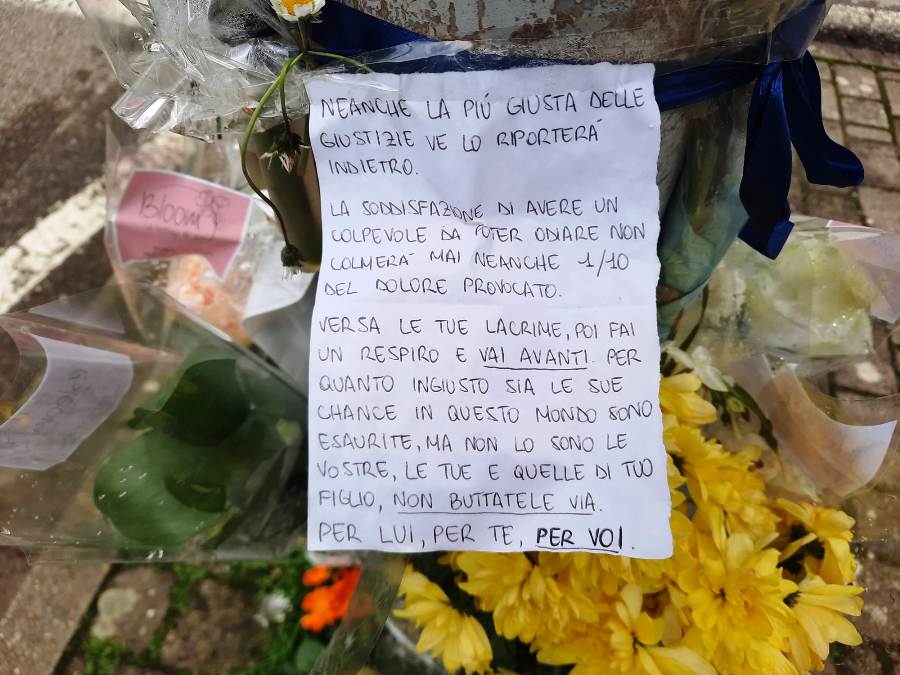 NEANCHE LA PIÚ GIUSTA DELLE
GIUSTIZIE VE LO RIPORTERA'
INDIETRO.
LA SODDISFAZIONE DI AVERE UN
COLPEVOLE DA POTER ODIARE NON
COLMERA' MAI NEANCHE 1/10
DEL DOLORE PROVOCATO.
VERSA LE TUE LACRIME, POI FAI
UN RESPIRO E VAI AVANTI. PER
QUANTO INGIUSTO SIA LE SUE
CHANCE IN QUESTO MONDO SONO
ESAURITE, MA NON LO SONO LE
VOSTRE, LE TUE E QUELLE DI TUO
FIGLIO, NON BUTTATELE VIA.
PER LUI, PER TE, PER VOI.
Bloom